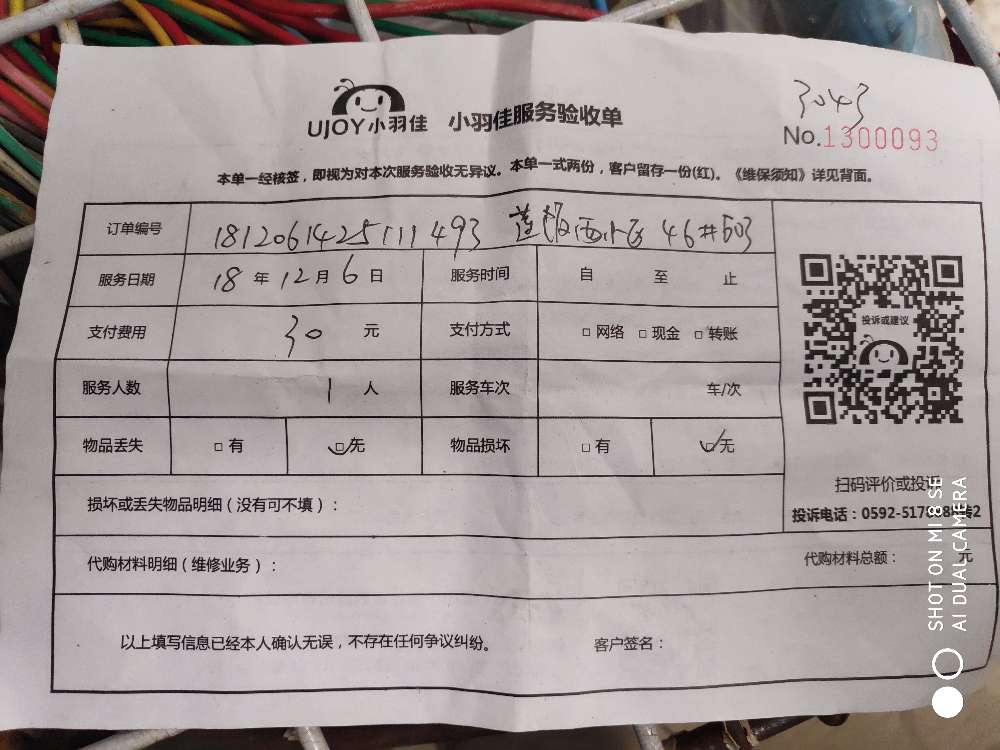 UJOY小羽佳 小羽佳服务验收单
3043
No.1300093
本单一经核签，即视为对本次服务验收无异议。本单一式两份，客户留存一份(红)。《维保须知》详见背面。
订单编号 181206142511493 莲 西小区 46#503
服务日期 18 年 12 月 6 日 服务时间 自 至 止
支付费用 30 元 支付方式 □ 网络 □ 现金 □ 转账
服务人数 1 人 服务车次 车/次
物品丢失 □ 有 ☑无 物品损坏 □ 有 ☑无
投诉或建议
扫码评价或投诉
投诉电话：0592-517
转2
损坏或丢失物品明细（没有可不填）：
代购材料明细（维修业务）： 代购材料总额： 元
以上填写信息已经本人确认无误，不存在任何争议纠纷。 客户签名：
SHOT ON MI 8 SE
AI DUAL CAMERA